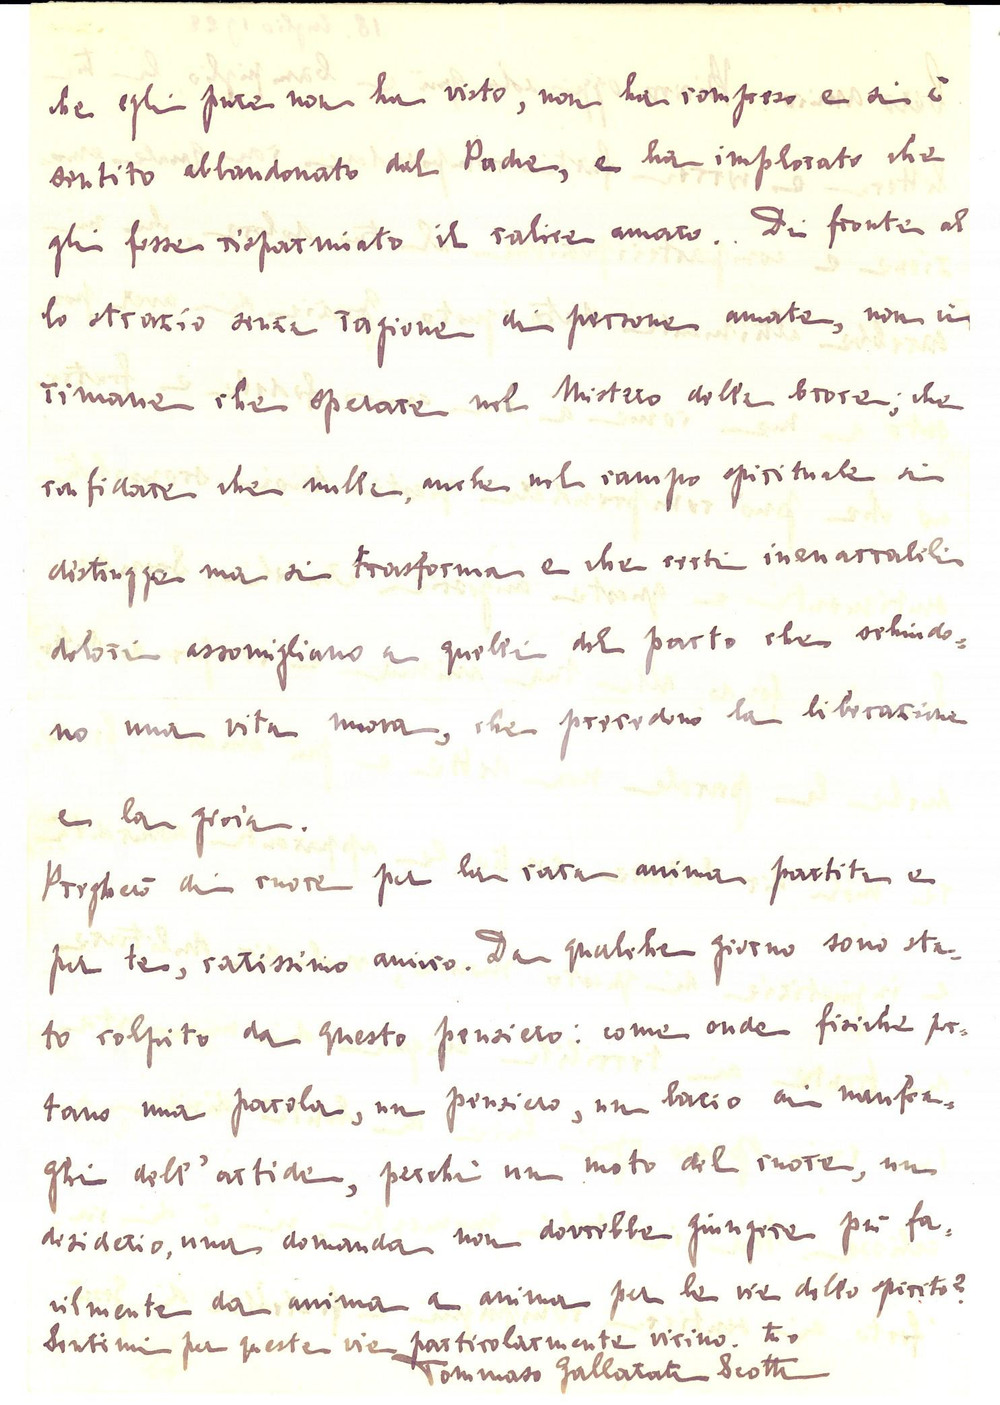 che egli pure non ha visto, non ha compreso e si è
sentito abbandonato dal Padre, e ha implorato che
gli fosse risparmiato il calice amaro.. Di fronte al
lo strazio senza ragione di persone amate, non ci
rimane che sperare nel Mistero della Croce; che
confidare che nulla, anche nel campo spirituale si
distrugge ma si trasforma e che certi inenarrabili
dolori assomigliano a quelli del parto che schiudo=
no una vita nuova, che precedono la liberazione
e la gioia.
Pregherò di cuore per la cara anima partita e
per te, carissimo amico. Da qualche giorno sono sta=
to colpito da questo pensiero: come onde fisiche por=
tano una parola, un pensiero, un bacio ai naufra=
ghi dell'artide, perchè un moto del cuore, un
desiderio, una domanda non dovrebbe giungere più fa=
cilmente da anima a anima per le vie dello spirito?
Sentimi per queste vie particolarmente vicino. tuo
Tommaso Gallarati Scotti